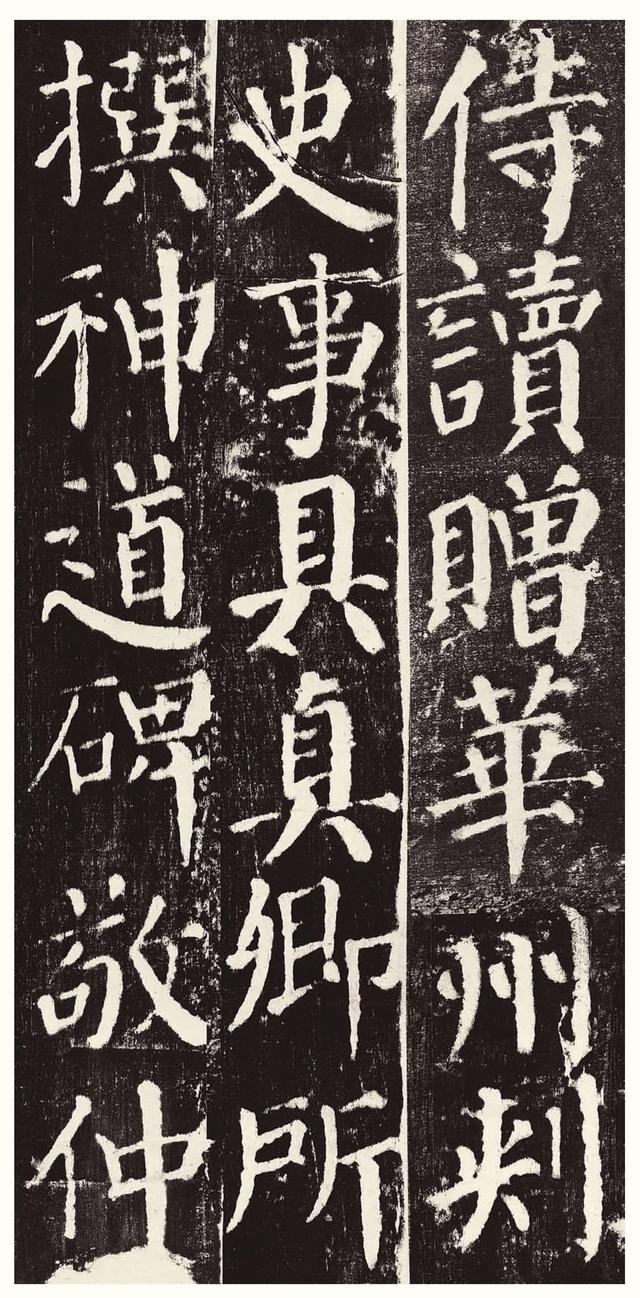 侍讀贈華州刺
史事具真卿所
撰神道碑敬仲